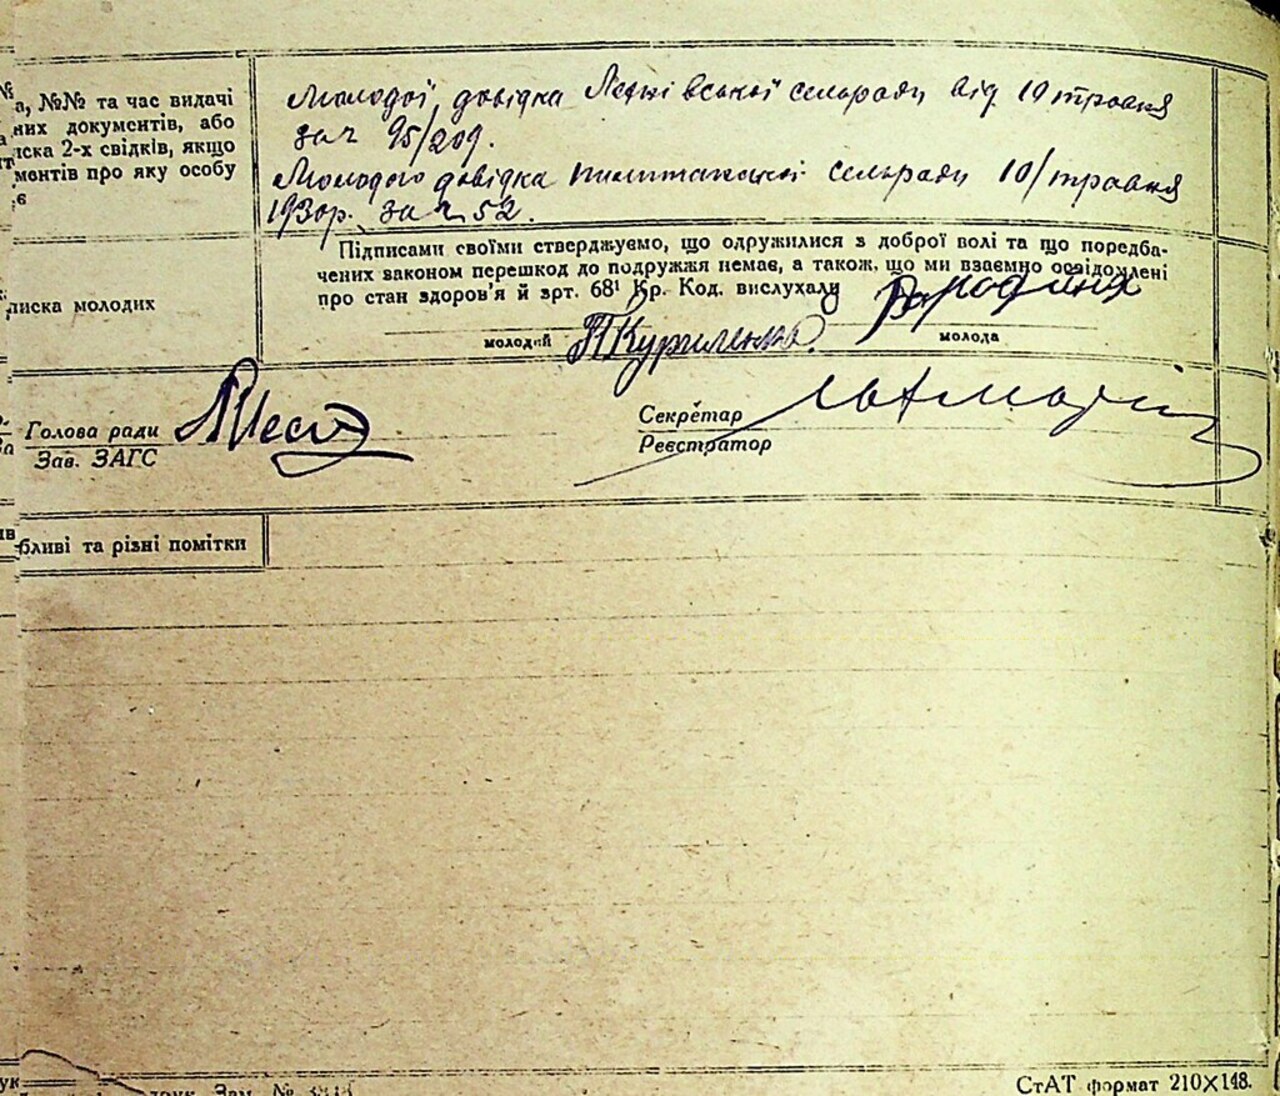 а, №№ та час видачі
них документів, або
иска 2-х свідків, якщо
ментів про яку особу
є
Молодої, довідка сельради від 19 травня
за ч 95/209.
Молодого довідка сельради 10/травня
1930р. за ч 52.
Підписами своїми стверджуємо, що одружилися з доброї волі та що поредба-
чених законом перешкод до подружжя немає, а також, що ми взаємно освідомлені
про стан здоров'я й зрт. 68¹ Кр. Код. вислухали
писка молодих
молодий
П Куриленко.
Бородіня
молода
Голова ради
Зав. ЗАГС
Секретар
Реєстратор
бливі та різні помітки
друк. Зам. №
СтАТ формат 210×148.